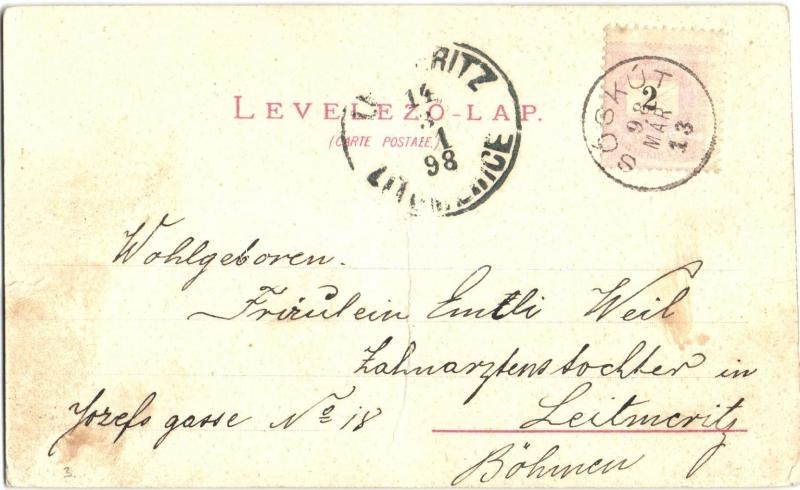 LEVELEZŐ-LAP.
(CARTE POSTALE.)
SÓSKÚT
2
98
MÁR
13
14
3
1
98
Wohlgeboren.
Fräulein Emili Weil
Zahnarztenstochter in
Jozefs gasse No 18 Leitmeritz
Böhmen
3.